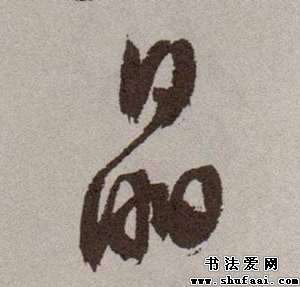 晶
书法爱网
www.shufaai.com